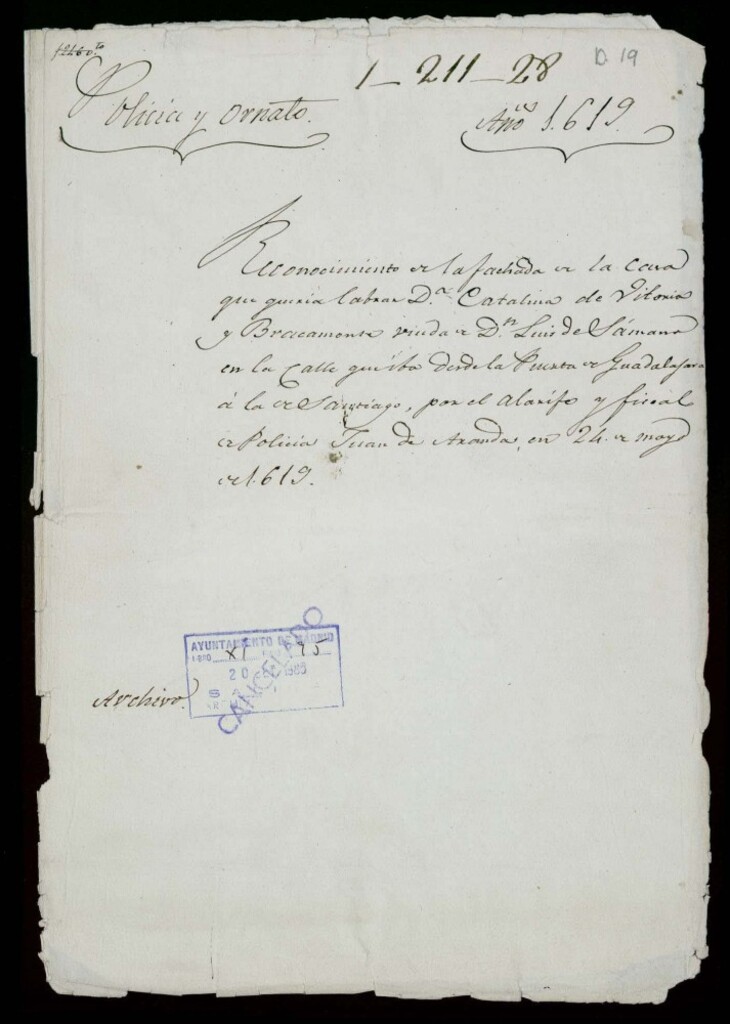 1-211-28
D. 19
Policia y Ornato.
Año 1.619.
Reconocimiento de la fachada de la casa
que queria labrar D.ª Catalina de Vitoria
y Bracamonte viuda de D.n Luis de Sámano
en la Calle que iba desde la Puerta de Guadalajara
á la de Santiago, por el Alarife y fiscal
de Policia Juan de Aranda, en 24 de mayo
de 1.619.
AYUNTAMIENTO DE MADRID
XI 75
20
CANCELADO
Archivo.